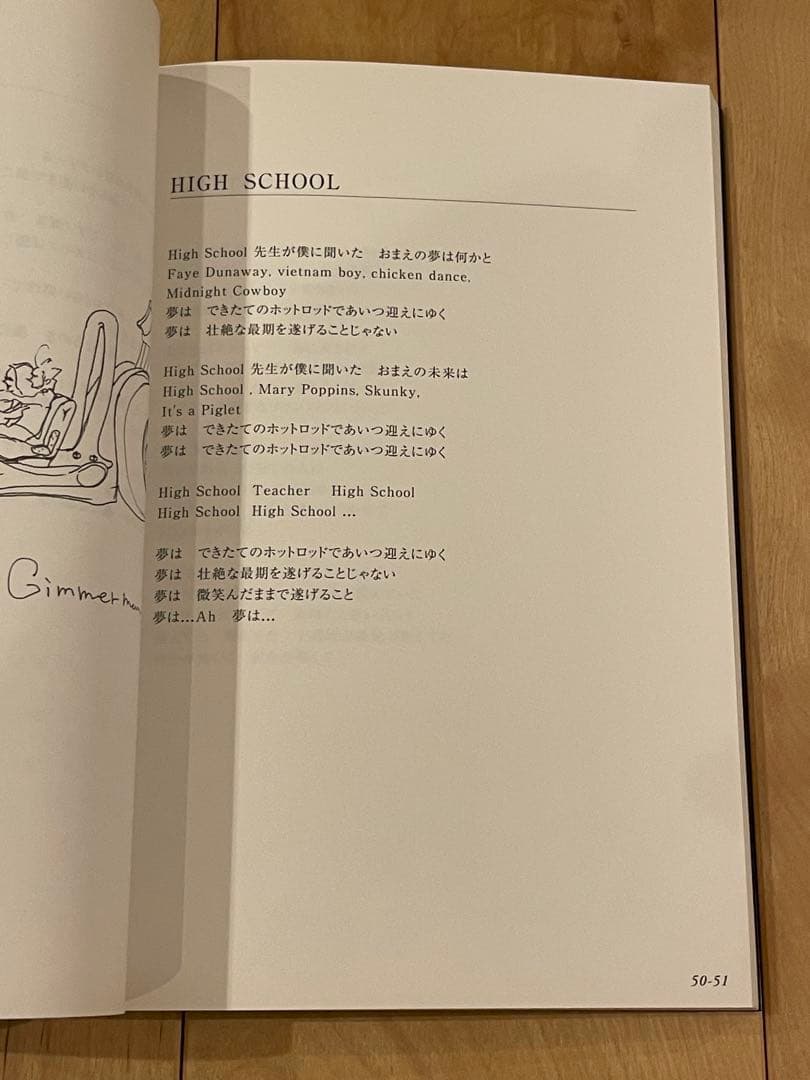 HIGH SCHOOL
High School 先生が僕に聞いた　おまえの夢は何かと
Faye Dunaway, vietnam boy, chicken dance,
Midnight Cowboy
夢は　できたてのホットロッドであいつ迎えにゆく
夢は　壮絶な最期を遂げることじゃない
High School 先生が僕に聞いた　おまえの未来は
High School , Mary Poppins, Skunky,
It's a Piglet
夢は　できたてのホットロッドであいつ迎えにゆく
夢は　できたてのホットロッドであいつ迎えにゆく
High School Teacher High School
High School High School ...
夢は　できたてのホットロッドであいつ迎えにゆく
夢は　壮絶な最期を遂げることじゃない
夢は　微笑んだままで遂げること
夢は...Ah　夢は...
Gimmer men
50-51